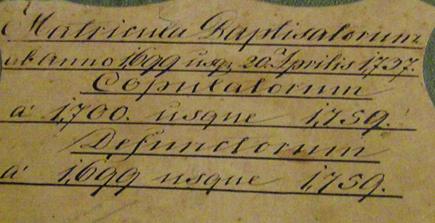 Matricula Baptisatorum
ab anno 1699 usq; 20. Aprilis 1737.
Copulatorum
á 1,700. usque 1,759.
Defunctorum
á 1,699 usque 1,759.